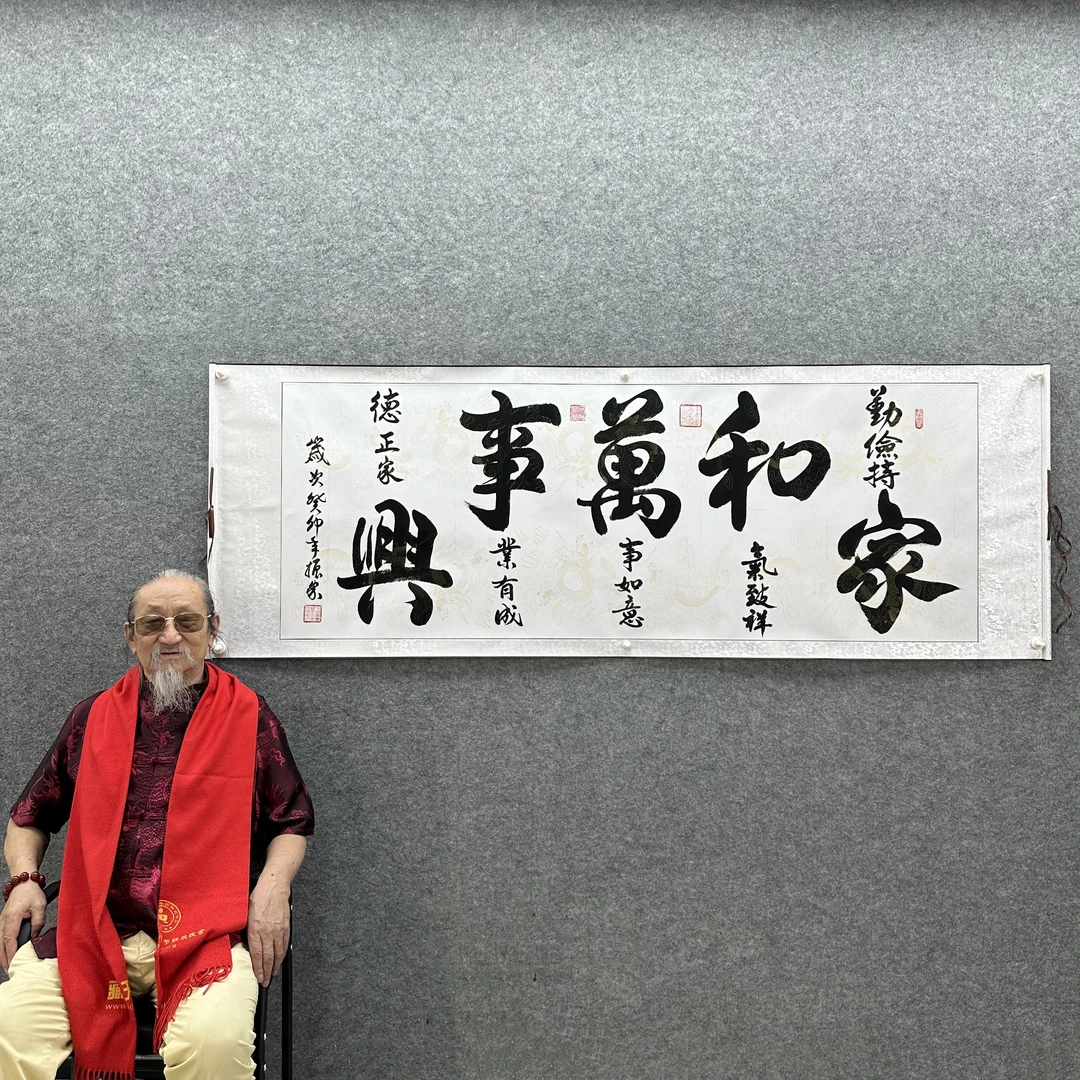 勤儉持
家
和
氣致祥
萬
事如意
事
業有成
德正家
興
歲次癸卯年振家